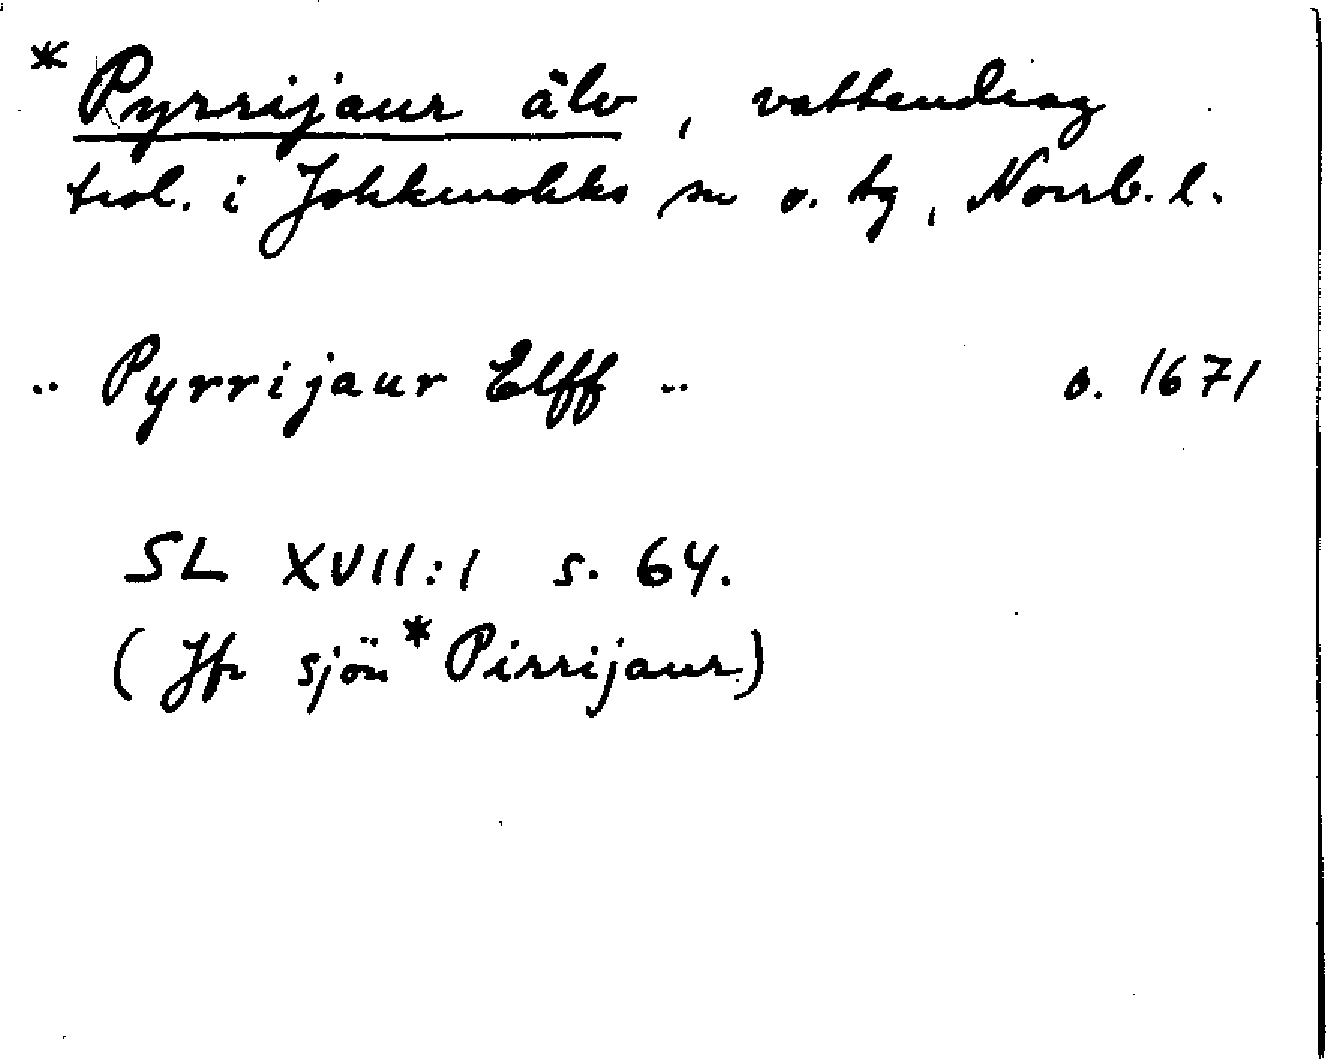 * Pyrrijaur älv, vattendrag
trol. i Jokkmokks sn o. tg, Norrb. l.
.. Pyrrijaur Elff .. o. 1671
SL XVII:1 s. 64.
(Jfr sjön * Pirrijaur)